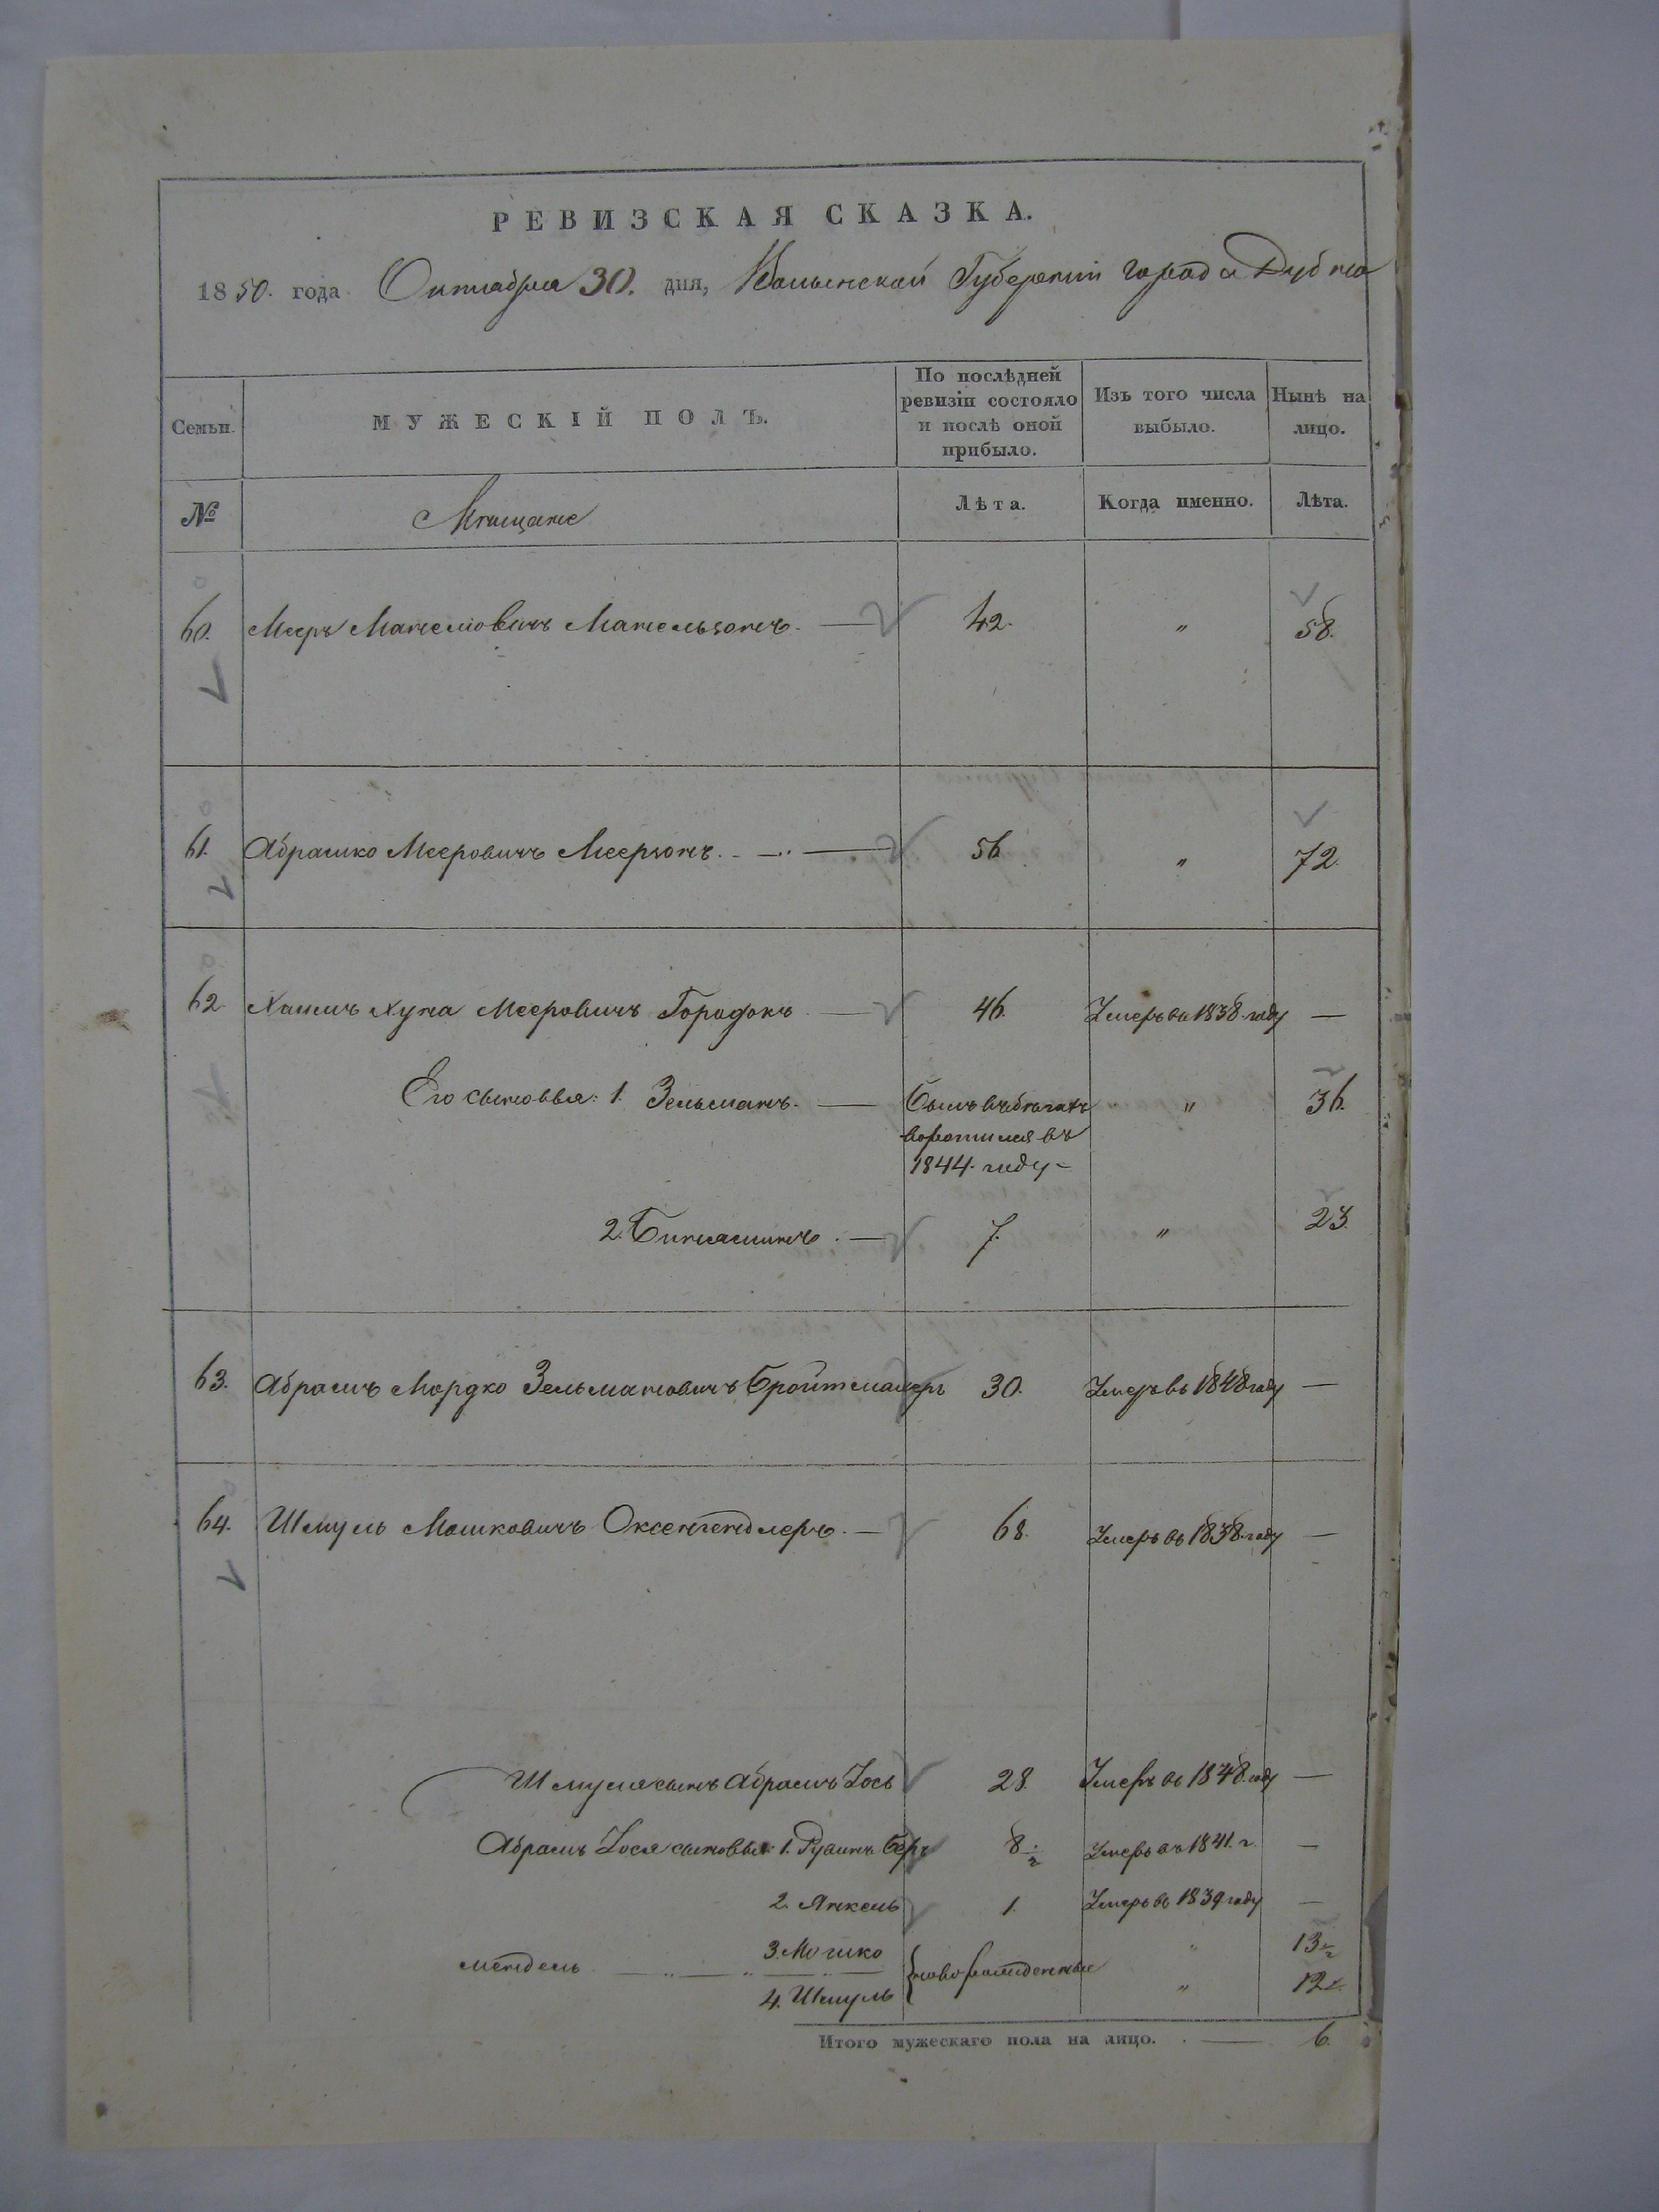 РЕВИЗСКАЯ СКАЗКА.
1850. года Октября 30. дня, Волынской Губернии города Дубна
Семьи.
МУЖЕСКІЙ ПОЛЪ.
По послѣдней ревизіи состояло и послѣ оной прибыло.
Изъ того числа выбыло.
Нынѣ на лицо.
№
Мѣщане
Лѣта.
Когда именно.
Лѣта.
60. Мееръ Манелiовичъ Манельзонъ. — 42. " 58.
61. Абрашко Мееровичъ Меерзонъ. — 56. " 72.
62. Хаимъ Хуна Мееровичъ Городокъ — 46. Умеръ въ 1838 году —
Его сыновья: 1. Зельманъ. — Былъ въ бѣгахъ " 36.
воротился въ
1844. году -
2. Биньяминъ. — 7. " 23.
63. Абрамъ Мордко Зельмановичъ Бройтманъ 30. Умеръ въ 1848 году —
64. Шмуль Мошковичъ Оксенгендлеръ. — 68. Умеръ въ 1838 году —
Шмуля сынъ Абрамъ Іось 28. Умеръ въ 1848 году —
Абрамъ Іося сыновья 1. Рувинъ Беръ 8 ½ Умеръ въ 1841. г. —
2. Янкель 1. Умеръ въ 1839 году —
3. Мошко " 13 ½
Мендель новорожденные
4. Шмуль " 12
Итого мужескаго пола на лицо. — 6.